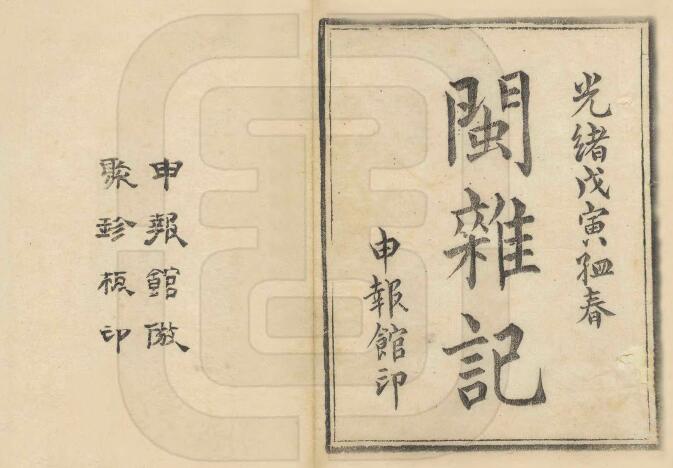 光緒戊寅孟春
閩雜記
申報館印
申報館倣
聚珍板印